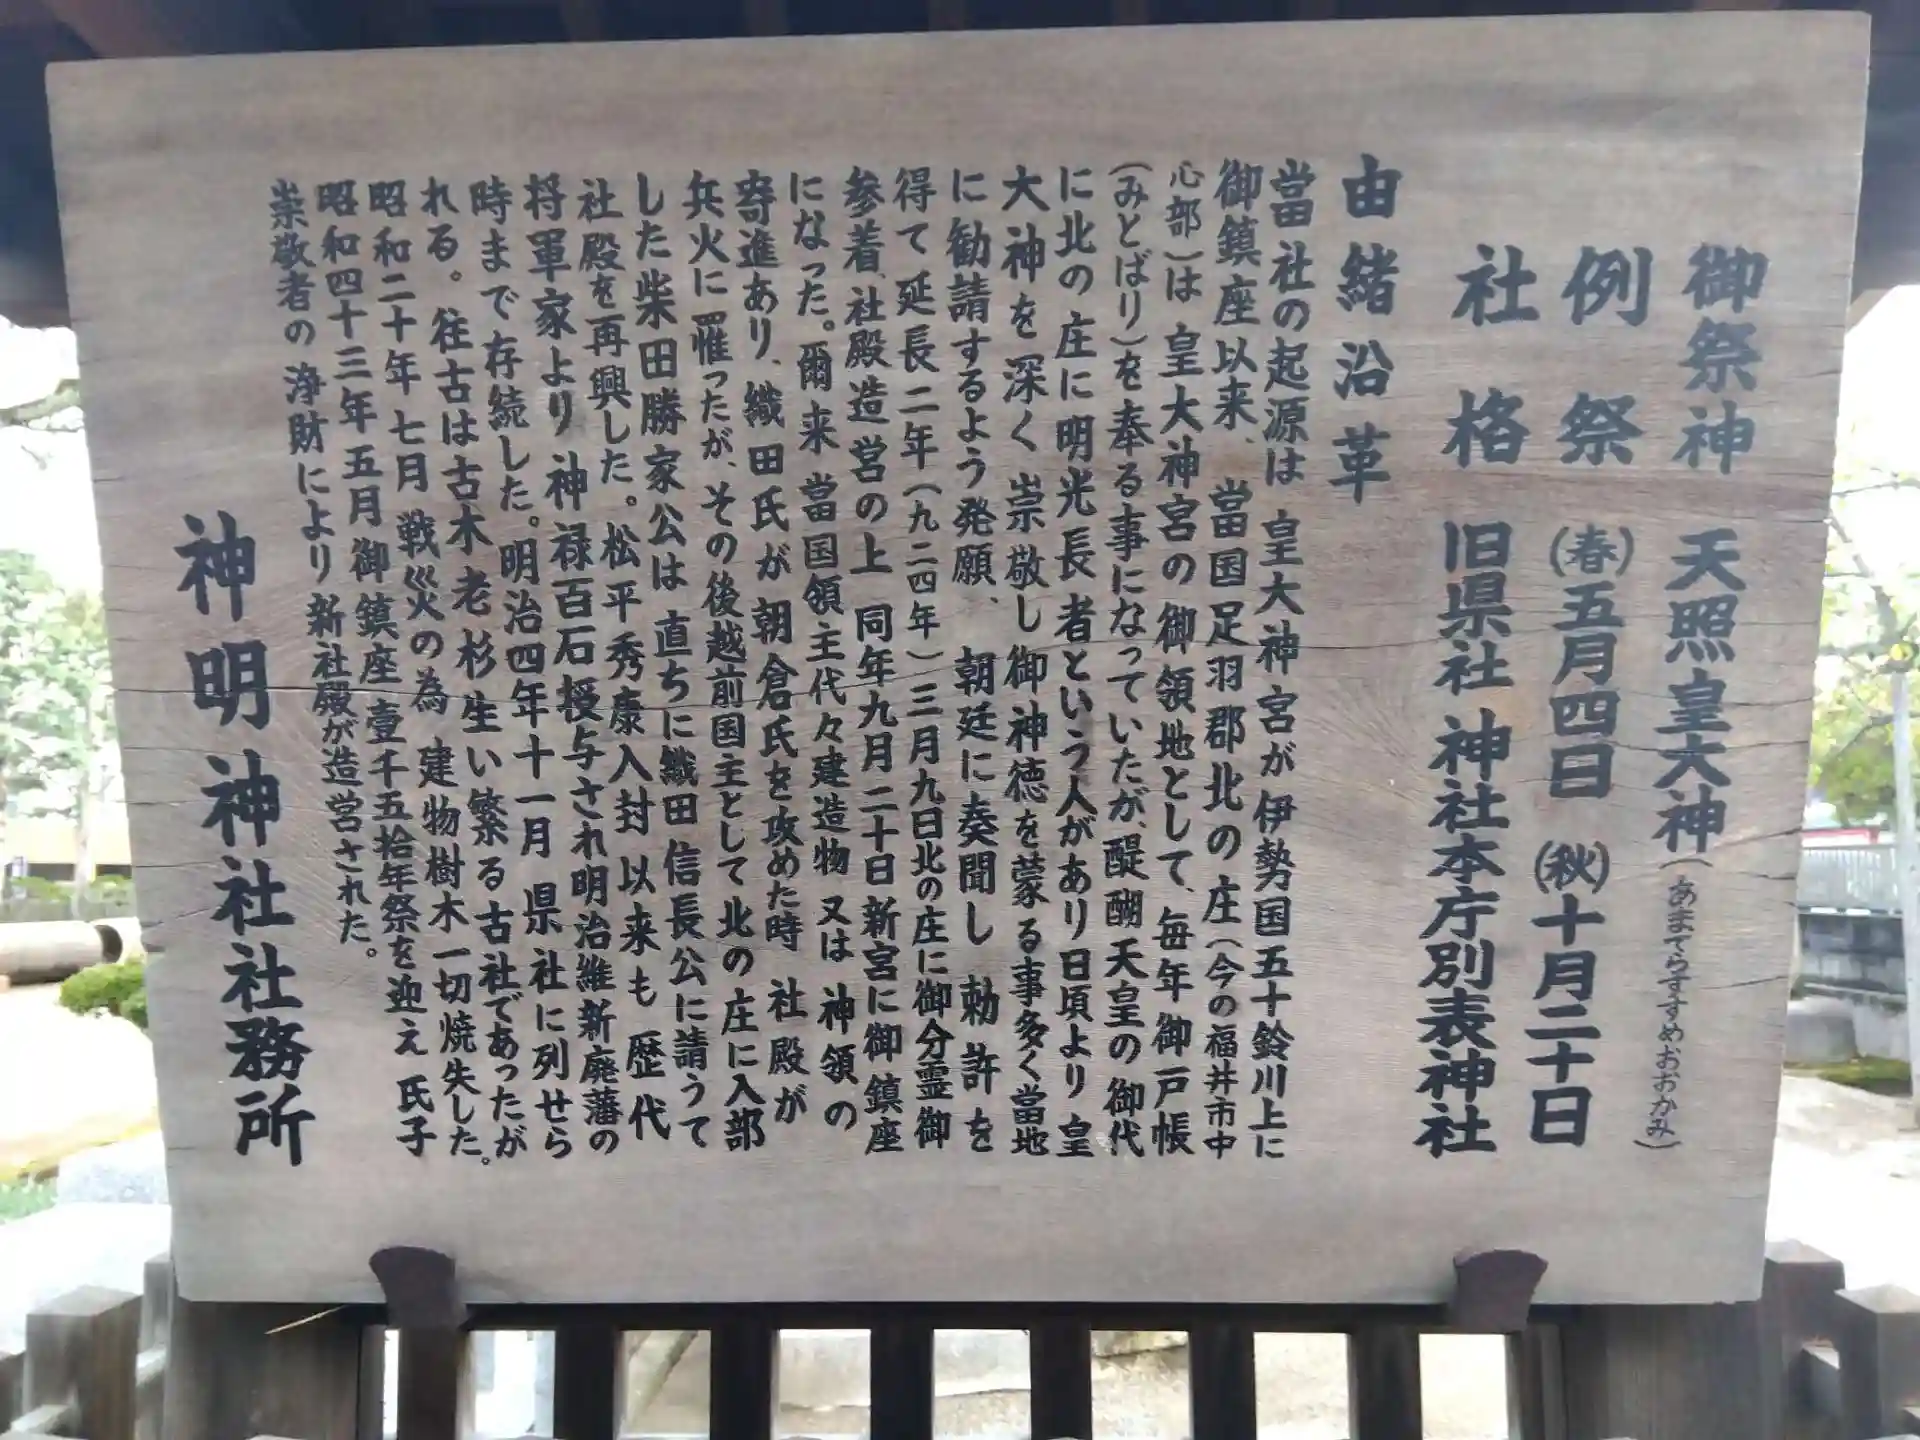 御祭神　天照皇大神（あまてらすすめおおかみ）
例祭　（春）五月四日　（秋）十月二十日
社格　旧県社　神社本庁別表神社
由緒沿革
當社の起源は　皇大神宮が伊勢国五十鈴川上に
御鎮座以来、當国足羽郡北の庄（今の福井市中
心部）は皇大神宮の御領地として、毎年御戸帳
（みとばり）を奉る事になっていたが、醍醐天皇の御代
に北の庄に明光長者という人があり日頃より皇
大神を深く崇敬し御神徳を蒙る事多く當地
に勧請するよう発願、朝廷に奏聞し勅許を
得て延長二年（九二四年）三月九日北の庄に御分霊御
参着、社殿造営の上　同年九月二十日新宮に御鎮座
になった。爾来當国領主代々建造物又は神領の
寄進あり、織田氏が朝倉氏を攻めた時　社殿が
兵火に罹ったが、その後越前国主として北の庄に入部
した柴田勝家公は直ちに織田信長公に請うて
社殿を再興した。松平秀康入封以来も歴代
将軍家より神禄百石授与され明治維新廃藩の
時まで存続した。明治四年十一月県社に列せら
れる。往古は古木老杉生い繁る古社であったが
昭和二十年七月戦災の為　建物樹木一切焼失した。
昭和四十三年五月御鎮座壹千五拾年祭を迎え氏子
崇敬者の浄財により新社殿が造営された。
神明神社社務所